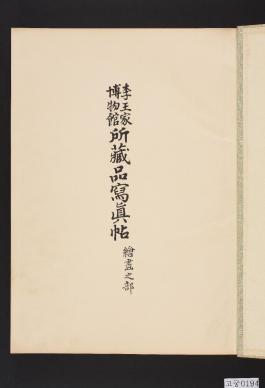 李王家
博物館
所藏品寫眞帖
繪畫之部
고궁0194